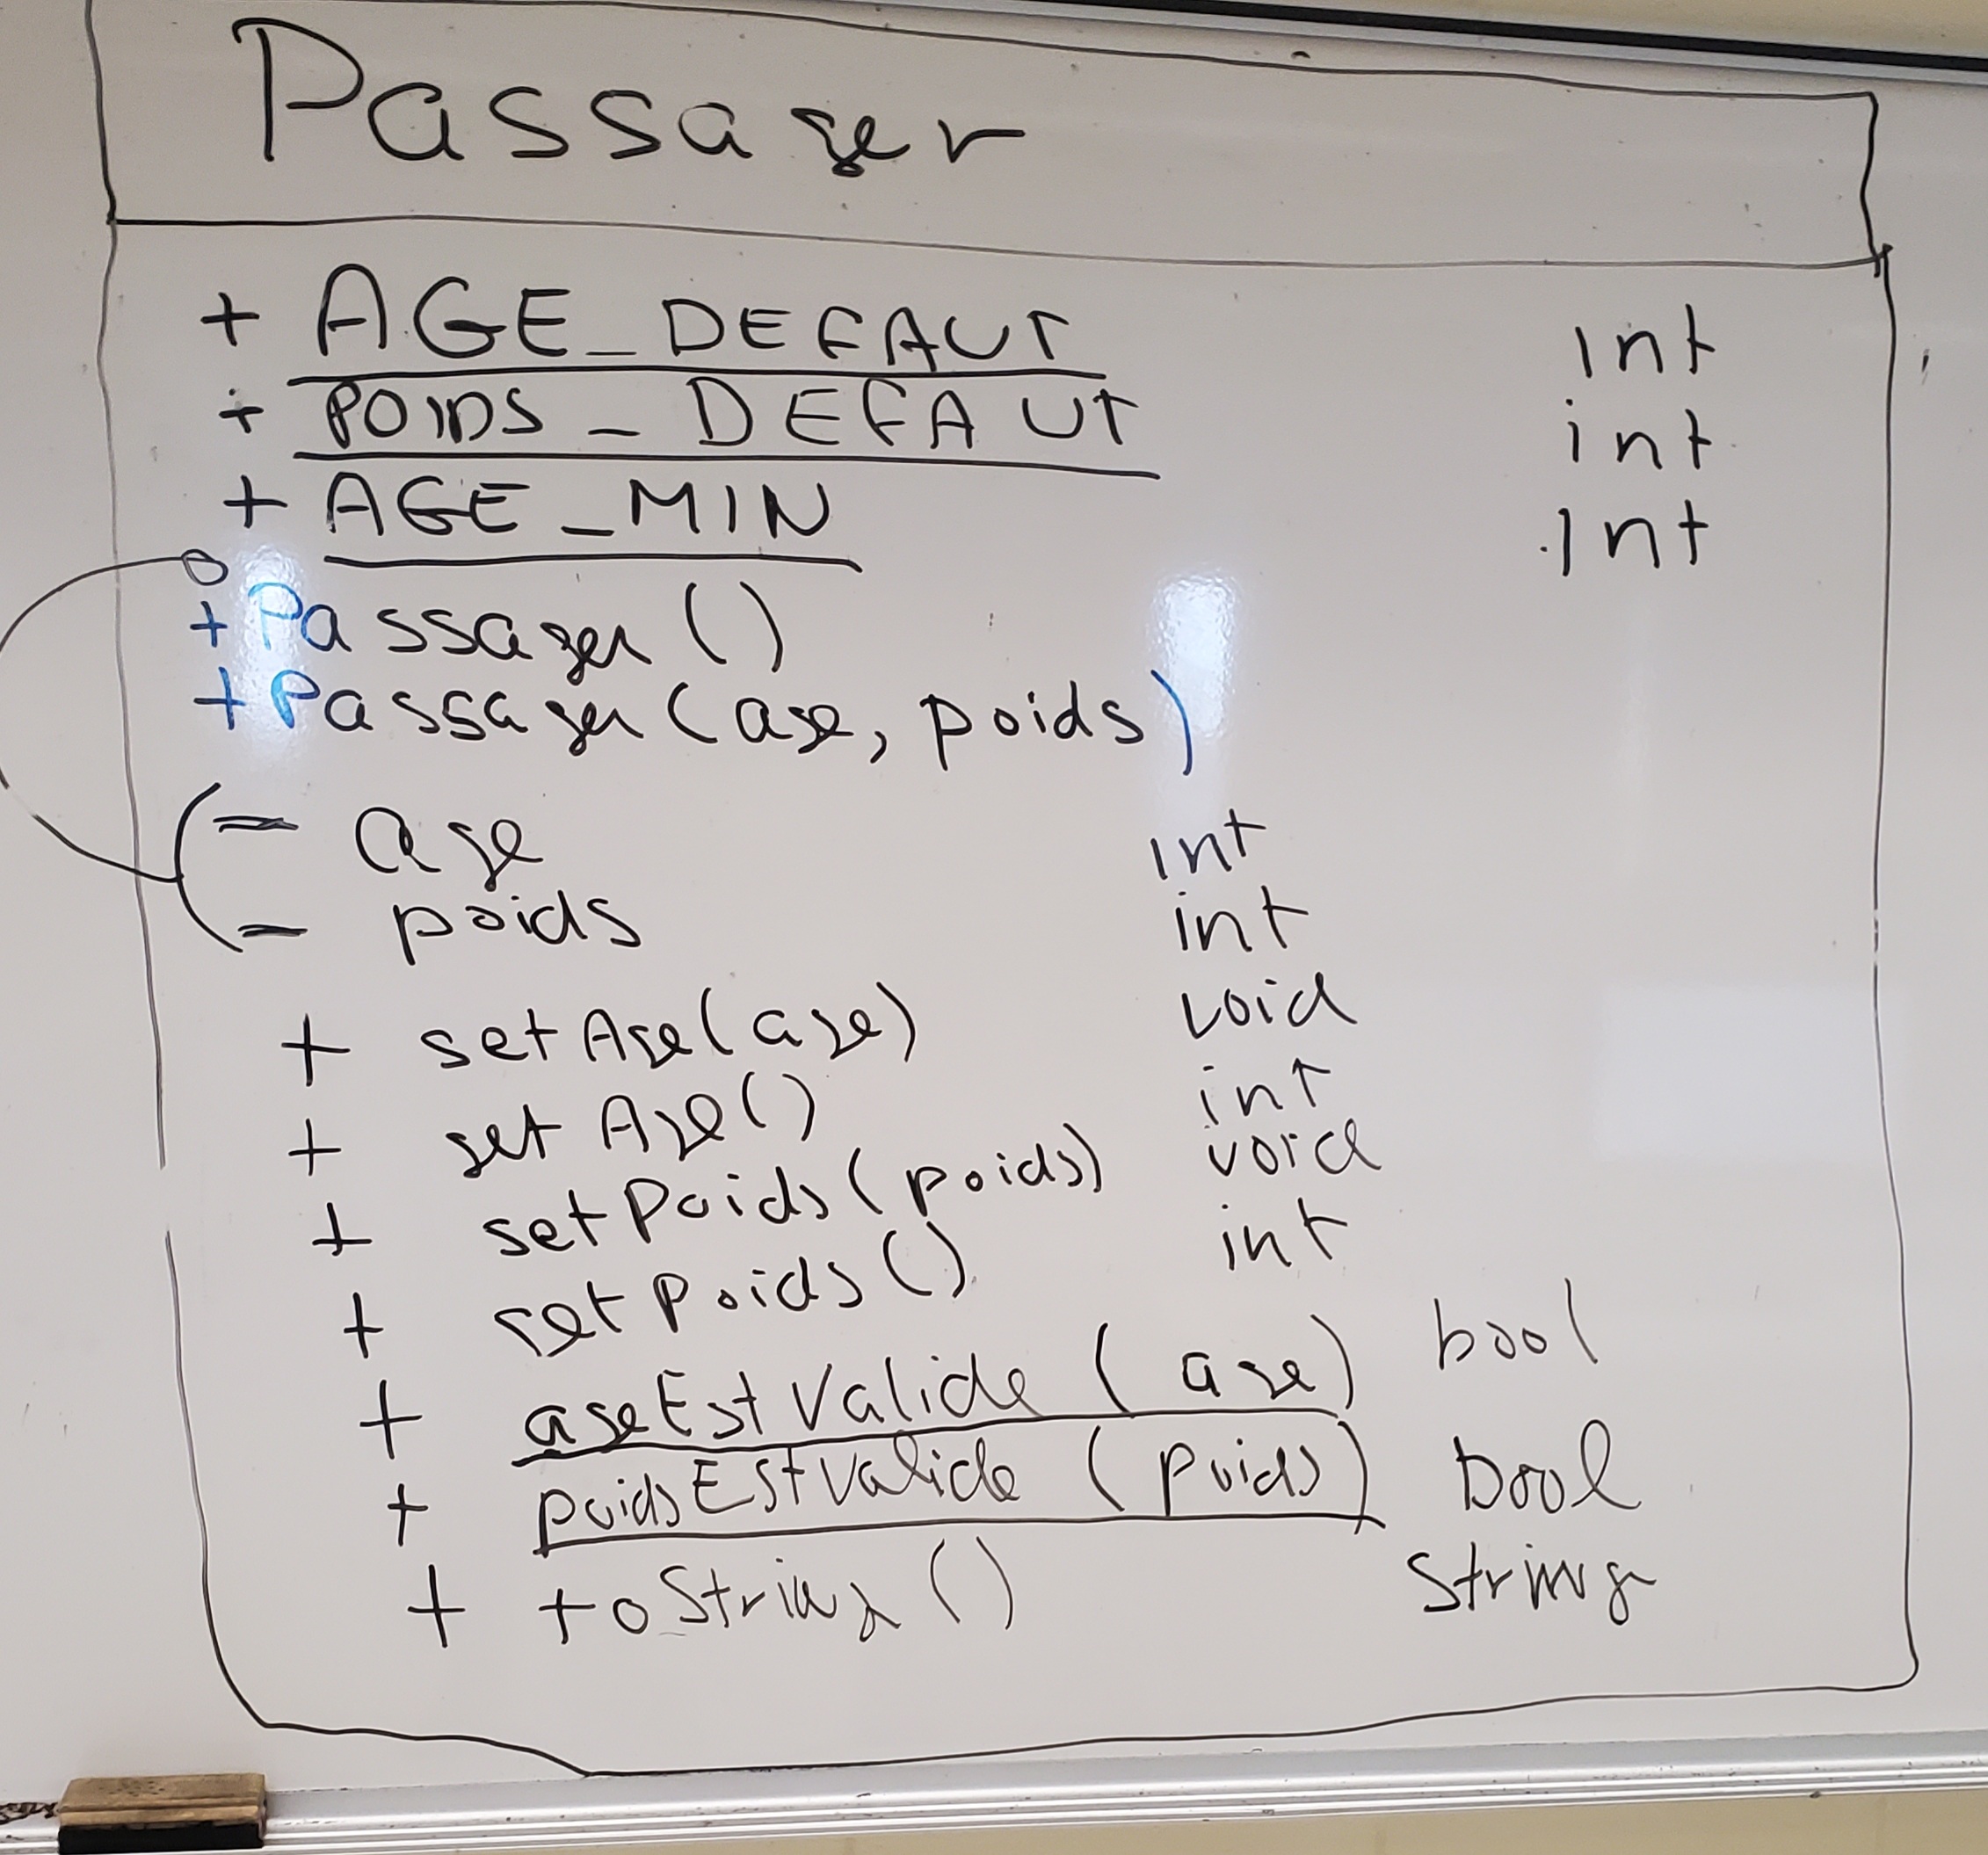 Passager
+ AGE_DEFAUT int
+ POIDS_DEFAUT int
+ AGE_MIN int
+ Passager ()
+ Passager (age, poids)
- age int
- poids int
+ setAge(age) void
+ getAge() int
+ setPoids(poids) void
+ getPoids() int
+ ageEstValide (age) bool
+ poidsEstValide (poids) bool
+ toString () String